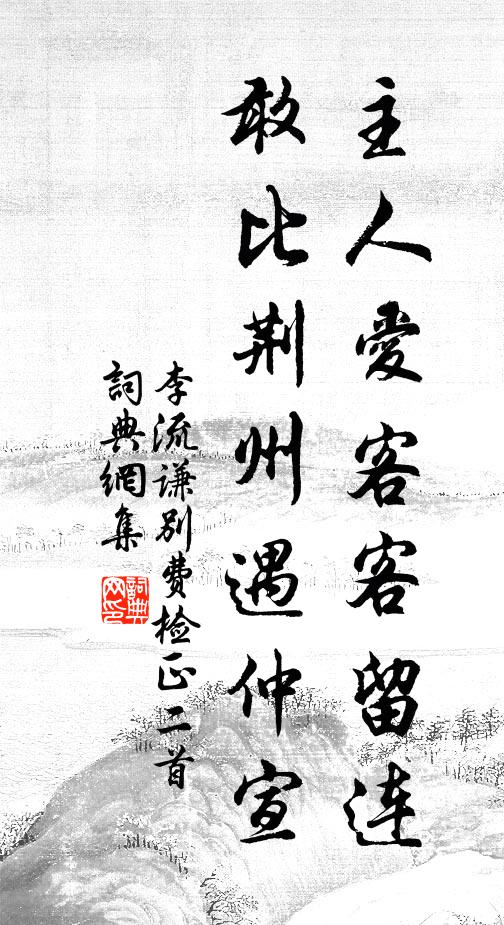 主人愛客客留連
敢比荆州遇仲宣
李流谦别费检正二首
詞典網集
詞典网印